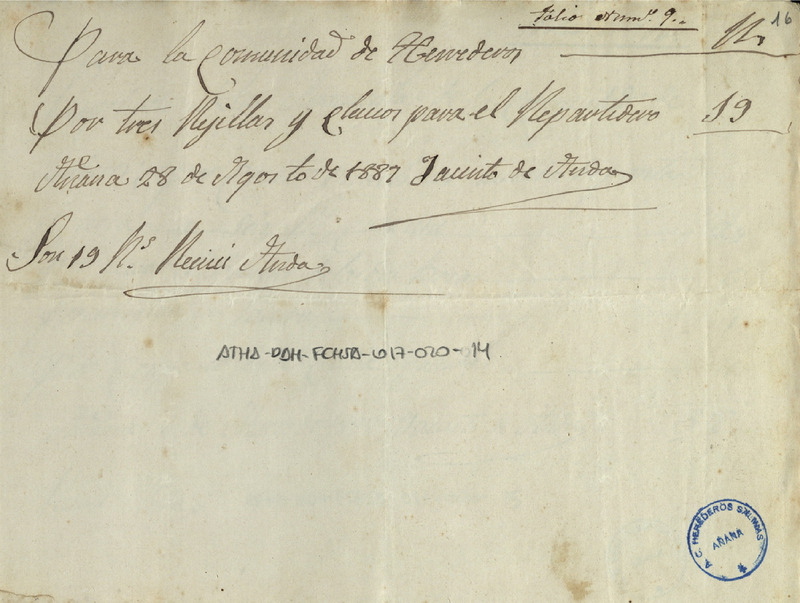 Folio Num.º 9.
16
Para la Comunidad de Herederos Rs
Por tres Rejillas y Clavos para el Repartidero 19
Añana 28 de Agosto de 1887 Jacinto de Anda
Son 19 Rs Recivi Anda
ATHA-DAH-FCHSA-017-020-14
A.C. HEREDEROS SALINAS
AÑANA